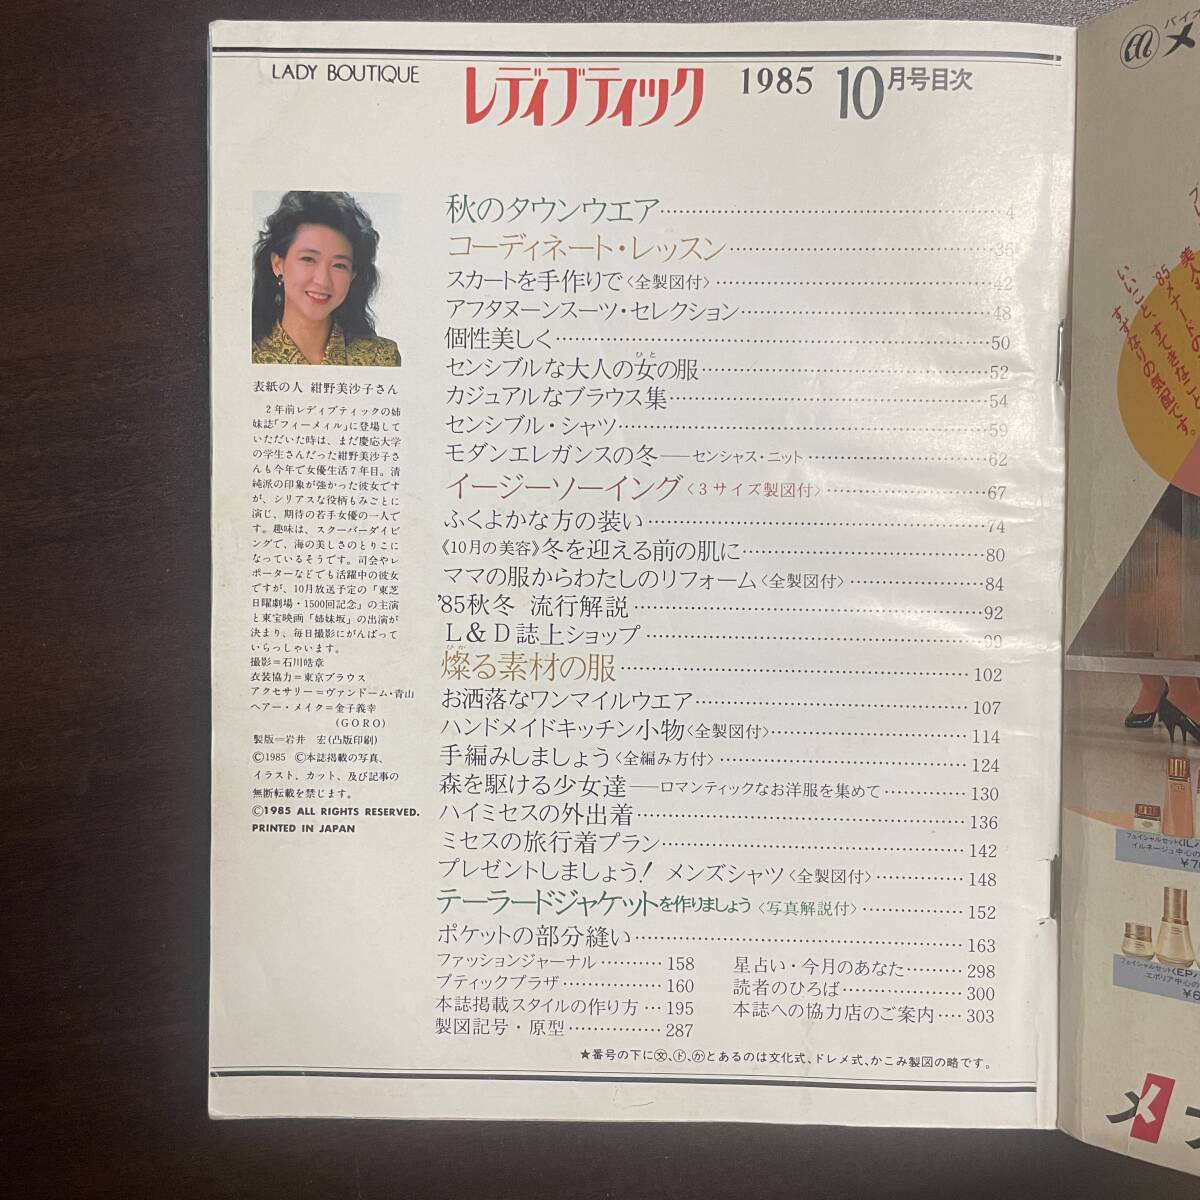 LADY BOUTIQUE
レディブティック 1985 10月号目次
秋のタウンウエア 4
コーディネート・レッスン 36
スカートを手作りで〈全製図付〉 42
アフタヌーンスーツ・セレクション 48
個性美しく 50
センシブルな大人の女の服 52
ひと
カジュアルなブラウス集 54
センシブル・シャツ 59
モダンエレガンスの冬―センシャス・ニット 62
イージーソーイング〈3サイズ製図付〉 67
ふくよかな方の装い 74
《10月の美容》冬を迎える前の肌に 80
ママの服からわたしのリフォーム〈全製図付〉 84
'85秋冬 流行解説 92
L&D誌上ショップ 99
ひか
燦る素材の服 102
お洒落なワンマイルウエア 107
ハンドメイドキッチン小物〈全製図付〉 114
手編みしましょう〈全編み方付〉 124
森を駆ける少女達―ロマンティックなお洋服を集めて 130
ハイミセスの外出着 136
ミセスの旅行着プラン 142
プレゼントしましょう! メンズシャツ〈全製図付〉 148
テーラードジャケットを作りましょう〈写真解説付〉 152
ポケットの部分縫い 163
ファッションジャーナル 158
ブティックプラザ 160
本誌掲載スタイルの作り方 195
製図記号・原型 287
星占い・今月のあなた 298
読者のひろば 300
本誌への協力店のご案内 303
★番号の下に㊛、㋣、㋕とあるのは文化式、ドレメ式、かこみ製図の略です。
表紙の人 紺野美沙子さん
2年前レディブティックの姉
妹誌「フィーメィル」に登場して
いただいた時は、まだ慶応大学
の学生さんだった紺野美沙子さ
んも今年で女優生活7年目。清
純派の印象が強かった彼女です
が、シリアスな役柄もみごとに
演じ、期待の若手女優の一人で
す。趣味は、スクーバーダイビ
ングで、海の美しさのとりこに
なっているそうです。司会やレ
ポーターなどでも活躍中の彼女
ですが、10月放送予定の「東芝
日曜劇場・1500回記念」の主演
と東宝映画「姉妹坂」の出演が
決まり、毎日撮影にがんばって
いらっしゃいます。
撮影=石川皓章
衣装協力=東京ブラウス
アクセサリー=ヴァンドーム・青山
ヘアー・メイク=金子義幸
(GORO)
製版=岩井 宏(凸版印刷)
©1985 ©本誌掲載の写真、
イラスト、カット、及び記事の
無断転載を禁じます。
©1985 ALL RIGHTS RESERVED.
PRINTED IN JAPAN
いいこと、すてきなこと
すずなりの気配です。
フェイシャルセット
イルネージュ中心の
フェイシャルセット
エポリア中心の